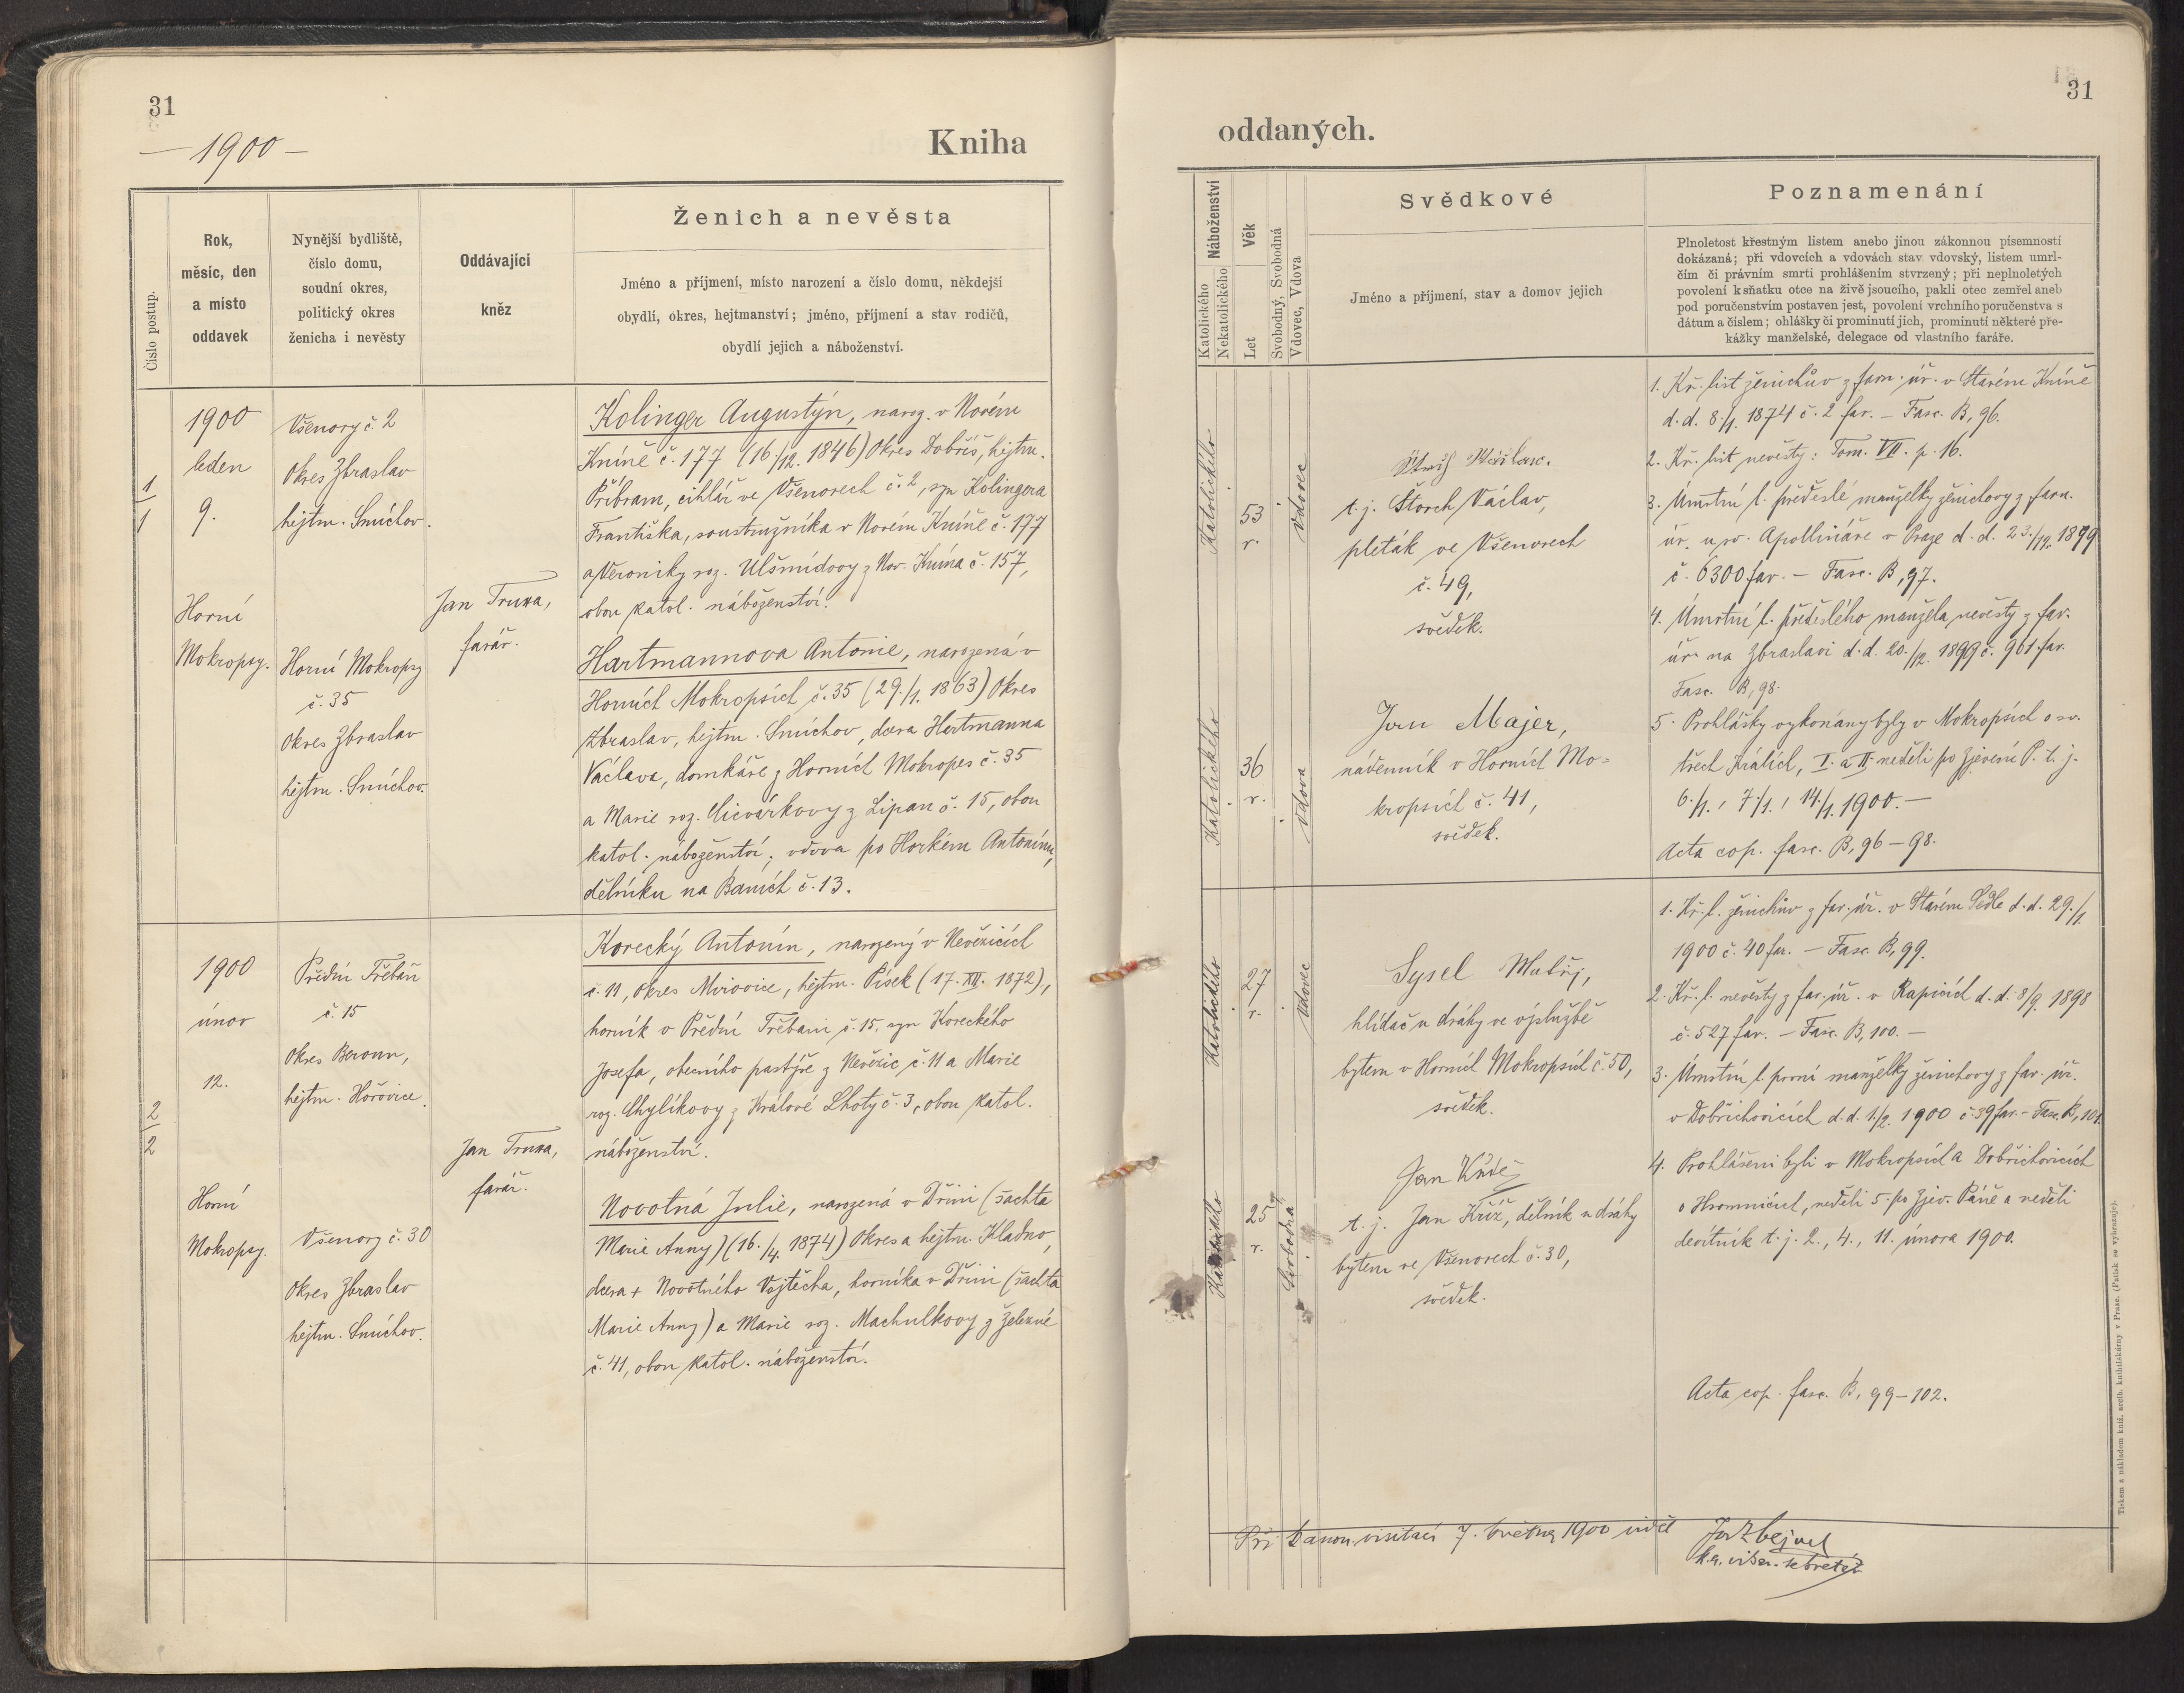 31
— 1900 —
Kniha
Číslo postup.
Rok,
měsíc, den
a místo
oddavek
Nynější bydliště,
číslo domu,
soudní okres,
politický okres
ženicha i nevěsty
Oddávající
kněz
Ženich a nevěsta
Jméno a příjmení, místo narození a číslo domu, někdejší
obydlí, okres, hejtmanství; jméno, příjmení a stav rodičů,
obydlí jejich a náboženství.
1
1
1900
leden
9.
Horní
Mokropsy.
Všenory č. 2
Okres Zbraslav
hejtm. Smíchov.
Horní Mokropsy
č. 35
Okres Zbraslav
hejtm. Smíchov.
Jan Truxa,
farář.
Kolinger Augustýn, naroz. v Novém
Kníně č. 177 (16./12. 1846) Okres Dobříš, hejtm.
Příbram, cihlář ve Všenorech č. 2, syn Kolingera
Františka, soustružníka v Novém Kníně č. 177
a Veroniky roz. Ulšmídovy z Nov. Knína č. 157,
obou katol. náboženství.
Hartmannova Antonie, narozená v
Horních Mokropsích č. 35 (29./1. 1863) Okres
Zbraslav, hejtm. Smíchov, dcera Hartmanna
Václava, domkáře z Horních Mokropes č. 35
a Marie roz. z Lipan č. 15, obou
katol. náboženství; vdova po Horkém Antonínu,
dělníku na Baních č. 13.
2
2
1900
únor
12.
Horní
Mokropsy.
Přední Třebáň
č. 15
Okres Beroun,
hejtm. Hořovice.
Všenory č. 30
Okres Zbraslav
hejtm. Smíchov.
Jan Truxa,
farář.
Korecký Antonín, narozený v Nevězicích
č. 11, Okres Mirovice, hejtm. Písek (17. XII. 1872),
horník v Přední Třebani č. 15, syn Koreckého
Josefa, obecního pastýře z Nevězic č. 11 a Marie
roz. Chylíkovy z Králové Lhoty č. 3, obou katol.
náboženství.
Novotná Julie, narozená v Dříni (šachta
Marie Anny) (16./4. 1874) Okres a hejtm. Kladno,
dcera + Novotného Vojtěcha, horníka v Dříni (šachta
Marie Anny) a Marie roz. Machulkovy z Železné
č. 41, obou katol. náboženství.
31
oddaných.
Náboženství
Katolického
Nekatolického
Věk
Let
Svobodný, Svobodná
Vdovec, Vdova
Svědkové
Jméno a příjmení, stav a domov jejich
Poznamenání
Plnoletost křestným listem anebo jinou zákonnou písemností
dokázaná; při vdovcích a vdovách stav vdovský, listem umrl-
čím či právním smrti prohlášením stvrzený; při neplnoletých
povolení k sňatku otce na živě jsoucího, pakli otec zemřel aneb
pod poručenstvím postaven jest, povolení vrchního poručenstva s
dátum a číslem; ohlášky či prominutí jich, prominutí některé pře-
kážky manželské, delegace od vlastního faráře.
Katolického
53
r.
Vdovec
t. j. Štorch Václav,
pleták ve Všenorech
č. 49,
svědek.
Katolického
36
r.
Vdova
Jan Majer,
nádenník v Horních Mo=
kropsích č. 41,
svědek.
1. Kř. list ženichův z farn. úř. v Starém Kníně
d. d. 8./1. 1874 č. 2 far. — Fasc. B, 96.
2. Kř. list nevěsty: Tom. VII. p. 16.
3. Úmrtní l. předešlé manželky ženichovy z farn.
úř. u sv. Apollináře v Praze d. d. 23./12. 1899
č. 6300 far. — Fasc. B, 97.
4. Úmrtní l. předešlého manžela nevěsty z far.
úř. na Zbraslavi d. d. 20./12. 1899 č. 961 far.
Fasc. B, 98.
5. Prohlášky vykonány byly v Mokropsích o sv.
třech Králích, I. a II. neděli po Zjevení P. t. j.
6./1., 7./1., 14./1. 1900. —
Acta cop. fasc. B, 96 — 98.
Katolického
27
r.
Vdovec
Sysel Matěj,
hlídač u dráhy ve výslužbě
bytem v Horních Mokropsích č. 50,
svědek.
Katolického
25
r.
Svobodná
Jan Kříž
t. j. Jan Kříž, dělník u dráhy
bytem ve Všenorech č. 30,
svědek.
1. Kř. l. ženichův z far. úř. v Starém Sedle d. d. 29./1.
1900 č. 40 far. — Fasc. B, 99.
2. Kř. l. nevěsty z far. úř. v Rapicích d. d. 8/9. 1898
č. 527 far. — Fasc. B, 100. —
3. Úmrtní l. první manželky ženichovy z far. úř.
v Dobřichovicích d. d. 1./2. 1900 č. 39 far. — Fasc. B, 101.
4. Prohlášeni byli v Mokropsích a Dobřichovicích
o Hromnicích, neděli 5. po Zjev. Páně a neděli
devítník t. j. 2., 4., 11. února 1900.
Acta cop. fasc. B, 99 — 102.
Při kanon. visitaci 7. května 1900 viděl
sekretář
Tiskem a nákladem kníž. arcib. knihtiskárny v Praze. (Patisk se vyhrazuje).